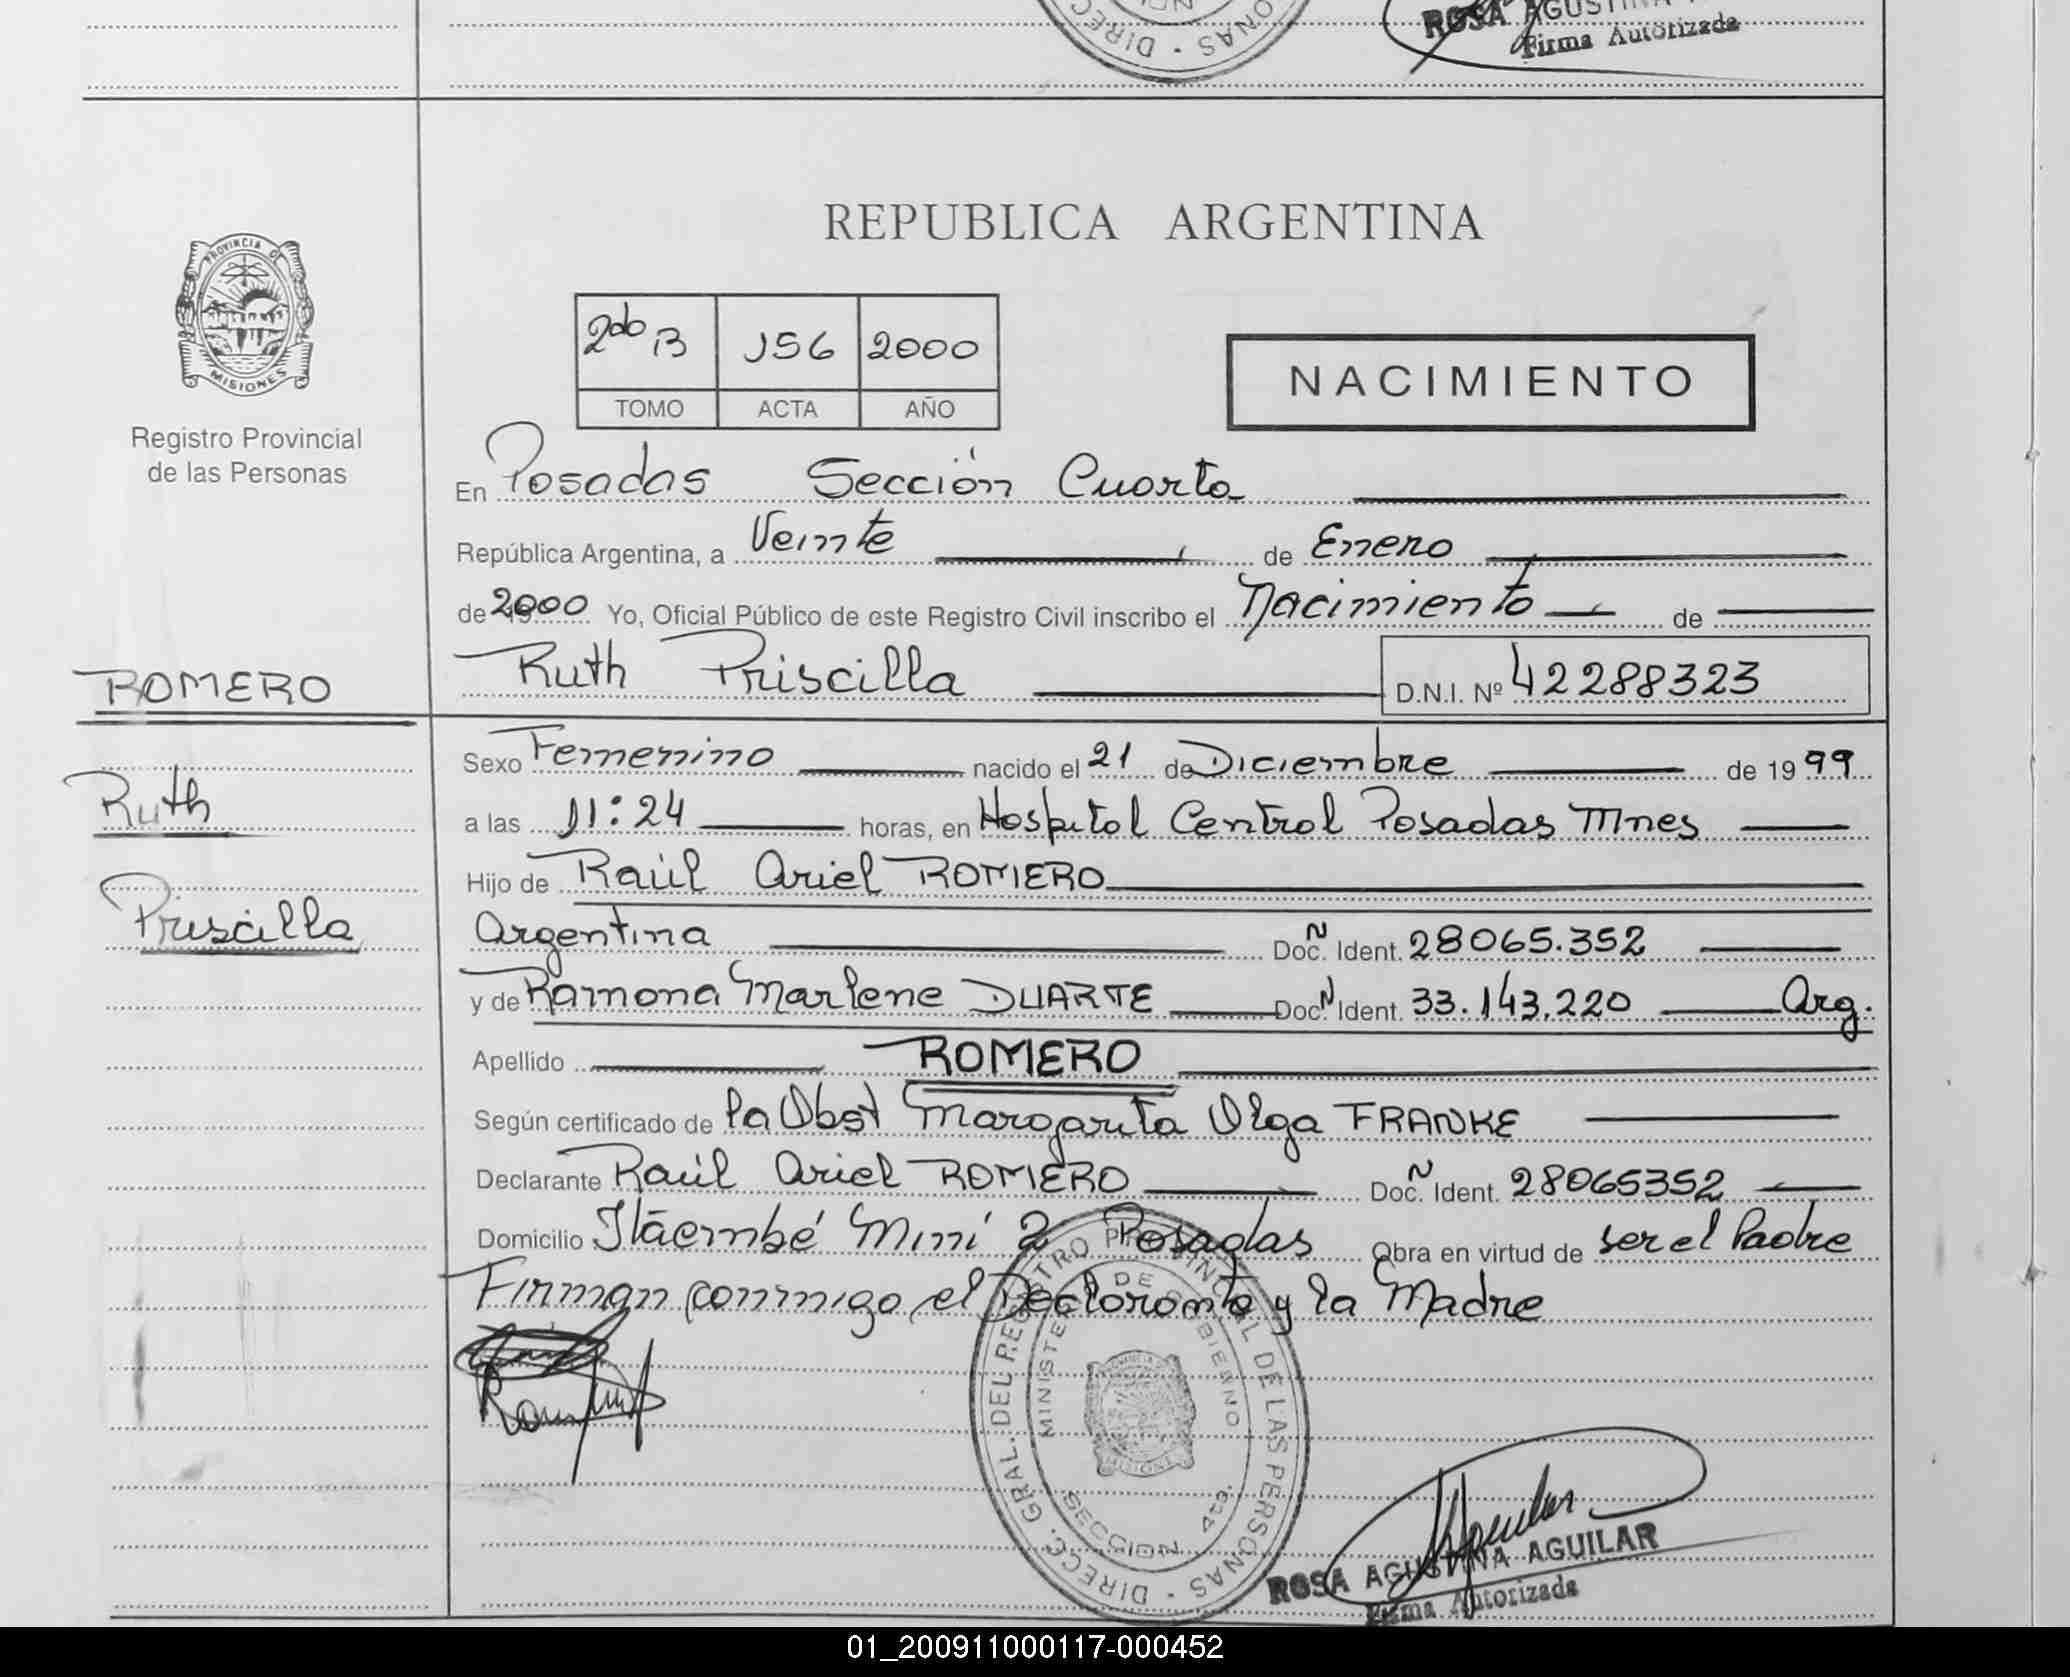 ROSA AGUSTINA
Firma Autorizada
DIREC
ONAS
REPUBLICA ARGENTINA
PROVINCIA DE
MISIONES
Registro Provincial
de las Personas
2do B 156 2000
TOMO ACTA AÑO
NACIMIENTO
En Posadas Sección Cuarta
República Argentina, a Veinte de Enero
de 2000 Yo, Oficial Público de este Registro Civil inscribo el Nacimiento de
ROMERO
Ruth Priscilla D.N.I. Nº 42288323
Sexo Femenino nacido el 21 de Diciembre de 1999
Ruth
a las 11:24 horas, en Hospital Central Posadas Mnes
Hijo de Raúl Ariel ROMERO
Priscilla
Argentina Doc. Ident. 28065.352
y de Ramona Marlene DUARTE Doc. Ident. 33.143.220 Arg.
Apellido ROMERO
Según certificado de la Obst Margarita Olga FRANKE
Declarante Raúl Ariel ROMERO Doc. Ident. 28065352
Domicilio Itaembé Miní 2 Posadas Obra en virtud de ser el Padre
Firman conmigo el Declarante y la Madre
DIRECC. GRAL. DEL REGISTRO PROVINCIAL DE LAS PERSONAS
MINISTERIO DE GOBIERNO
PROVINCIA DE
MISIONES
SECCION 4ta.
ROSA AGUSTINA AGUILAR
Firma Autorizada
01_200911000117-000452